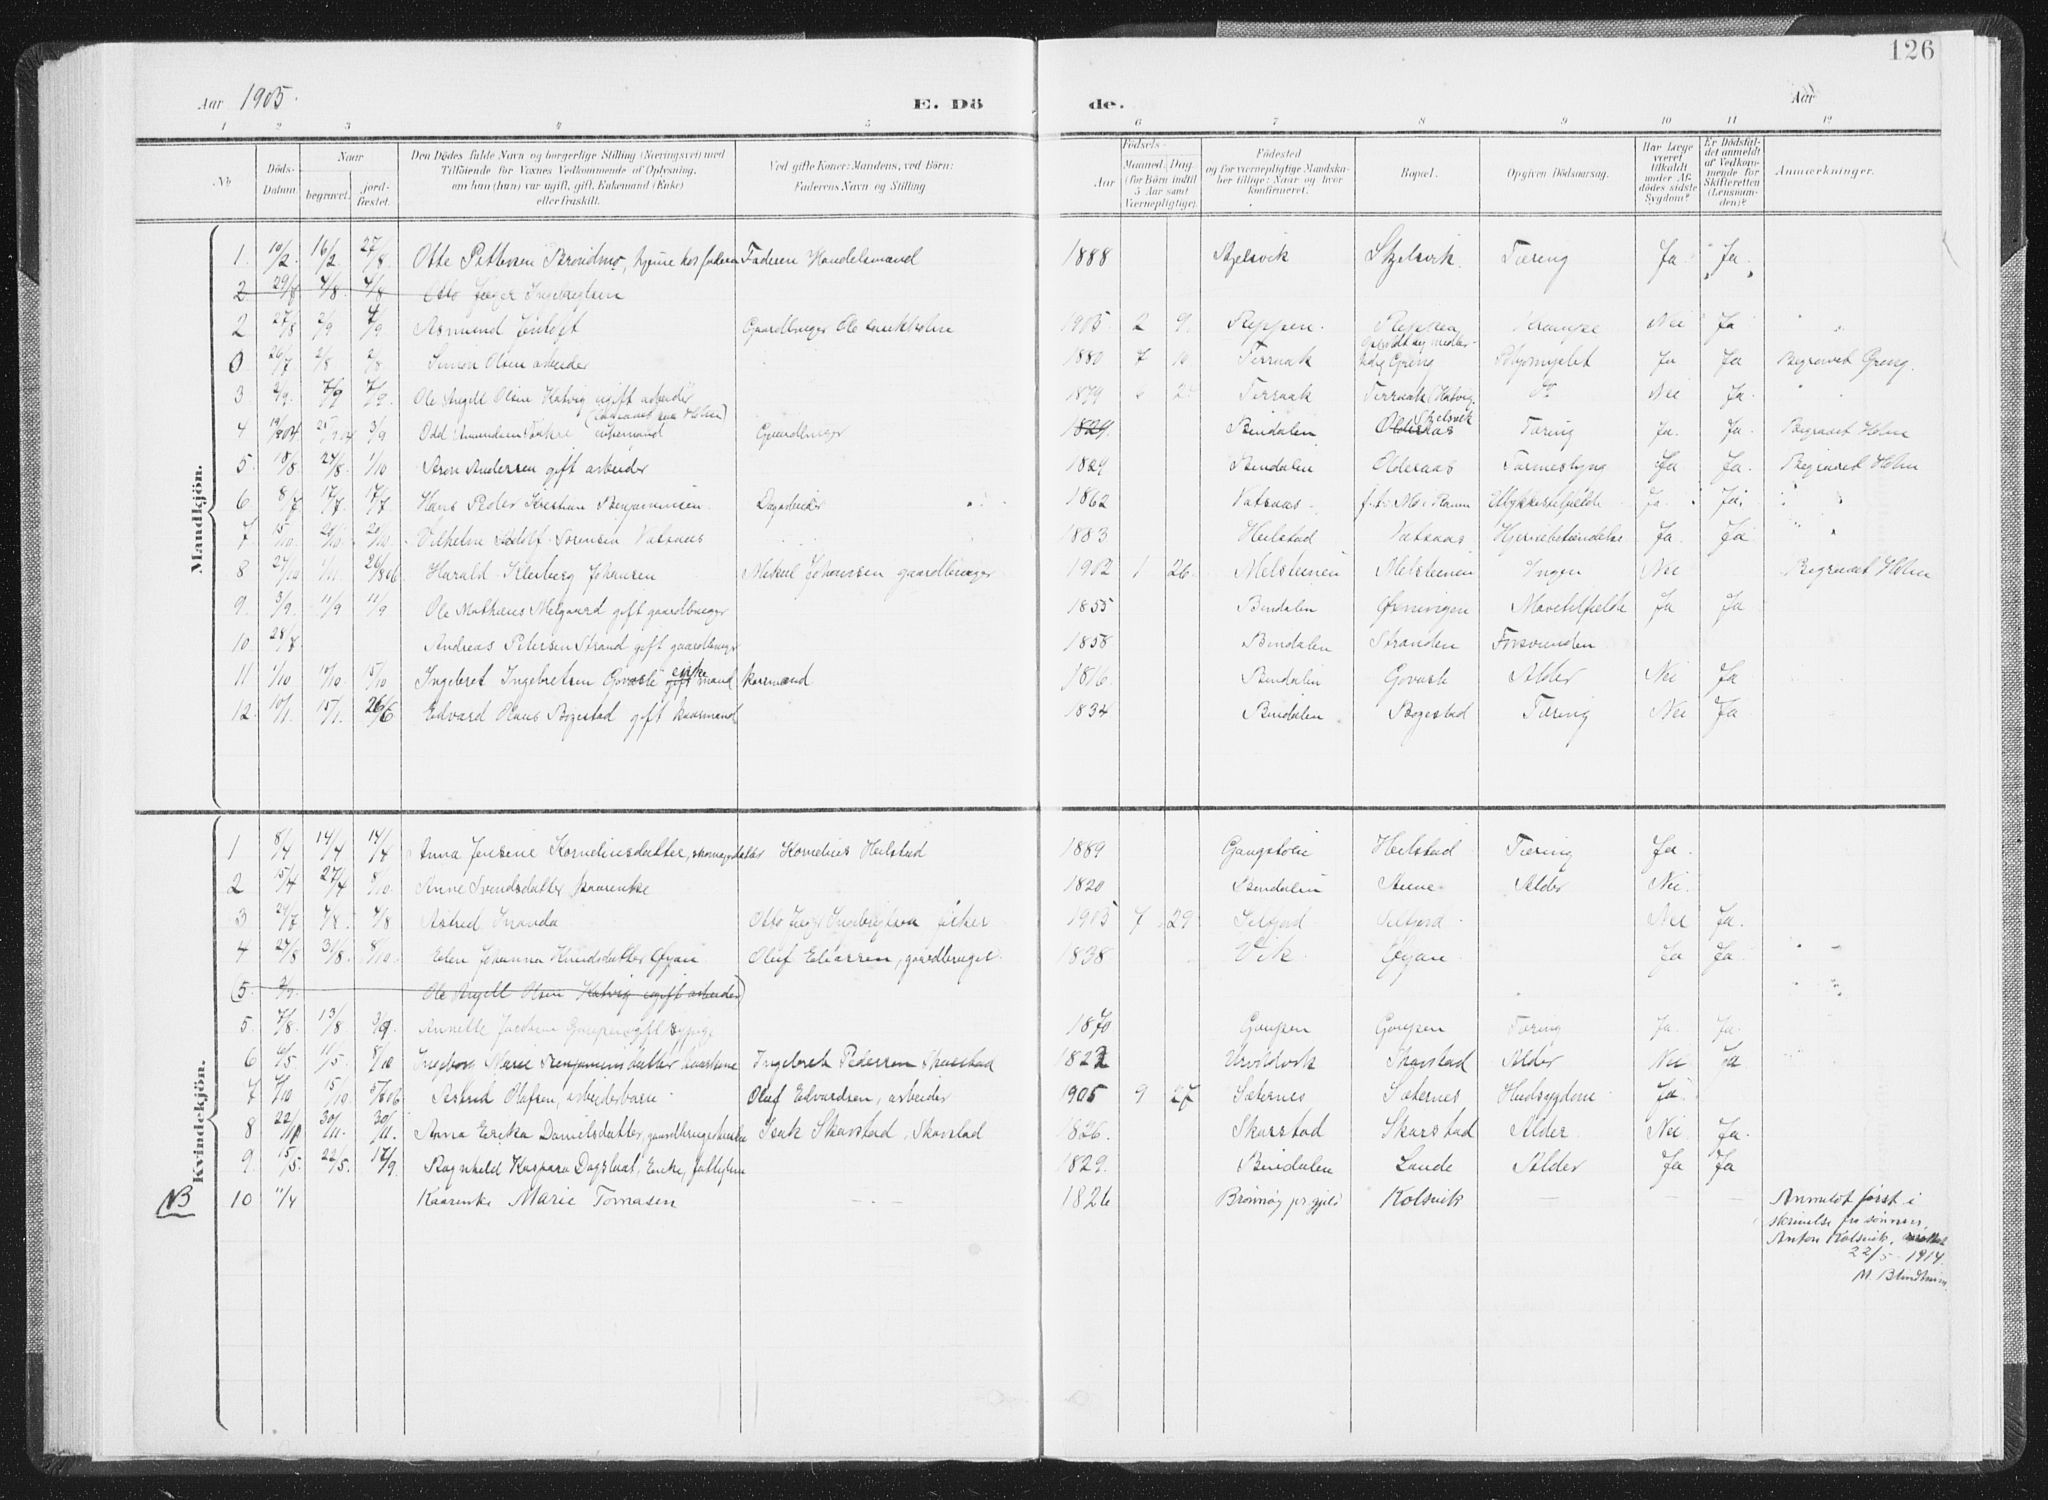 126
Aar 1905.
E. Döde.
Aar
1 2 3 4 5 6 7 8 9 10 11 12
No
Döds-Datum.
Naar begravet. jordfæstet.
Den Dödes fulde Navn og borgerlige Stilling (Næringsvei) med Tilföiende for Voxnes Vedkommende af Oplysning, om han (hun) var ugift, gift, Enkemand (Enke) eller fraskilt.
Ved gifte Koner: Mandens, ved Börn: Faderens Navn og Stilling
Födsels- Aar Maaned. Dag (for Börn indtil 5 Aar samt Værnepligtige).
Födested og for værnepligtige Mandskaber tillige: Naar og hvor konfirmeret.
Bopæl.
Opgiven Dödsaarsag.
Har Læge været tilkaldt under Afdödes sidste Sygdom?
Er Dödsfaldet anmeldt af Vedkommende for Skifteretten (Lensmanden)?
Anmærkninger.
Mandkjön.
1. 10/2 16/2 27/8 Otte Pettersen Brendmo, hjemme hos faderen Faderen Handelsmand 1888 Skjelsvik Skjelsvik Tæring Ja. Ja.
2 29/8 4/8 4/8 Otto Jæger Ingebrigtsen
2 27/8 2/9 4/9 Asmund Gaardbruger Ole 1905 2 9. Reppen. Reppen Nei Ja
0 26/7 2/8 2/8 Simon Olsen arbeider 1880 7 10 Terraak Ja Ja Begravet Greng.
3 2/9. 7/9 7/9. Ole Angell Olsen Katvig ugift arbeider 1879 Terraak Terraak (Katvig. Nei Ja.
4 19/8 3/9 Odd Amundsen enkemand (begravet paa Holm) Gaardbruger 1829. Bindalen Olderaas Skjelsvik Tæring Ja. Ja. Begravet Holm
5. 18/8. 24/8. 1/10 Aron Andersen gift arbeider 1829 Bindalen Olderaas Ja Ja. Begravet Holm
6 8/7 17/7. 17/7 Hans Peder Kristian Benjaminsen. Dagarbeider 1862 Vatsaas. Ulykkestilfælde Ja. Ja.
7. 15/10. 20/10 20/10. Vilhelm Adolf Sørensen Vatsaas 1883 Heilstad Vatsaas Hjernebetændelse. Ja. Ja.
8 24/10 1/11. 26/8 06 Harald Klerberg Johansen Mikal Johansen gaardbruger 1902 1 26. Melsteinen Melsteinen Ingen Nei Begravet Holm
9. 3/9. 11/9 11/9 Ole Mathæus Melgaard gift gaardbruger 1855 Bindalen Ja Ja
10 28/8 Andreas Petersen Strand gift gaardbruger 1858 Bindalen Stranden Forsvunden
11 1/10 10/10. 15/10 Ingebret Ingebretsen Govasli gift enkemand kaarmand 1816. Bindalen Govasli Alder Nei Ja
12. 10/1. 15/1. 26/6 Edvard Klaus Bogestad gift kaarmand 1834 Bindalen Bogestad Tæring Nei Ja
Kvindekjön.
1 8/4 14/4 14/4 Anna Jensine Kornelinsdatter, Kornelius Heilstad 1889 Gangstøen Heilstad Tæring Ja.
2 15/4 27/4 8/10. Anne Svendsdatter kaarenke 1820 Bindalen Aune Alder Nei.
3 29/7 4/8. 4/8 Astrid Inanda Otto Jæger Ingebrigtsen fisker 1905 7 29. Nei Ja.
4 24/8 31/8. 8/10. Elen Johanna Knudsdatter Øyan Oluf Eliassen, gaardbruger. 1838 Vik. Øyan Ja Ja.
(5. 2/9. Ole Angell Olsen Katvig ugift arbeider)
5. 7/8. 13/8 Annette Jacobsen Goupen ugift sypige 1870 Goupen Goupen Tæring Ja. Ja.
6 6/5 11/5. 8/10 Ingeborg Marie Benjaminsdatter kaarkone Ingebret Pedersen Skarstad 1822 Urvoldvik Skarstad Alder Nei Ja
7 7/10 15/10. 5/8 06 Astrid Olafsen, arbeiderbarn. Oluf Edvardsen, arbeider 1905 9 27 Sæternes Sæternes Hudsygdom Ja.
8 22/11 30/11. 30/11. Anna Erika Danielsdatter, Isak Skarstad, Skarstad 1826. Skarstad Skarstad Alder Nei Ja.
9. 15/5. 22/5. 17/9. Ragnhild Kaspara Dagslaat, Enke, fattiglem 1829. Bindalen Lande Alder Ja Ja
NB 10 11/4 Kaarenke Marie Tomasen 1826 Brønnøy pr.gjeld Kolsvik Anmeldt først i
skrivelse fra sønnen,
Anton Kolsvik,
22/5 - 1914.
M. Blindheim